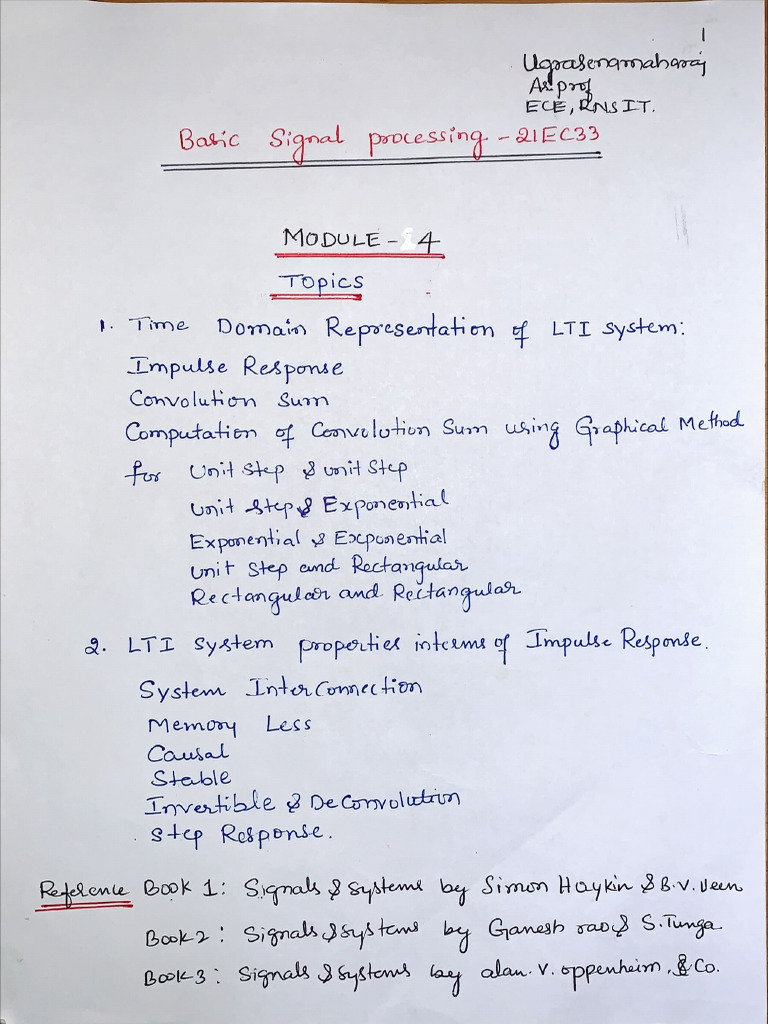 1
Ugrasenamaharaj
As.prof
ECE, RNSIT.
Basic Signal processing - 21EC33
MODULE - 4
Topics
1. Time Domain Representation of LTI system:
Impulse Response
Convolution Sum
Computation of Convolution Sum using Graphical Method
for Unit Step & unit Step
Unit Step & Exponential
Exponential & Exponential
Unit Step and Rectangular
Rectangular and Rectangular
2. LTI System properties interms of Impulse Response.
System InterConnection
Memory Less
Causal
Stable
Invertible & DeConvolution
Step Response.
Reference Book 1: Signals & Systems by Simon Haykin & B.V. Veen
Book-2: Signals & Systems by Ganesh rao & S. Tunga
Book-3: Signals & Systems by alan. V. oppenheim, & Co.